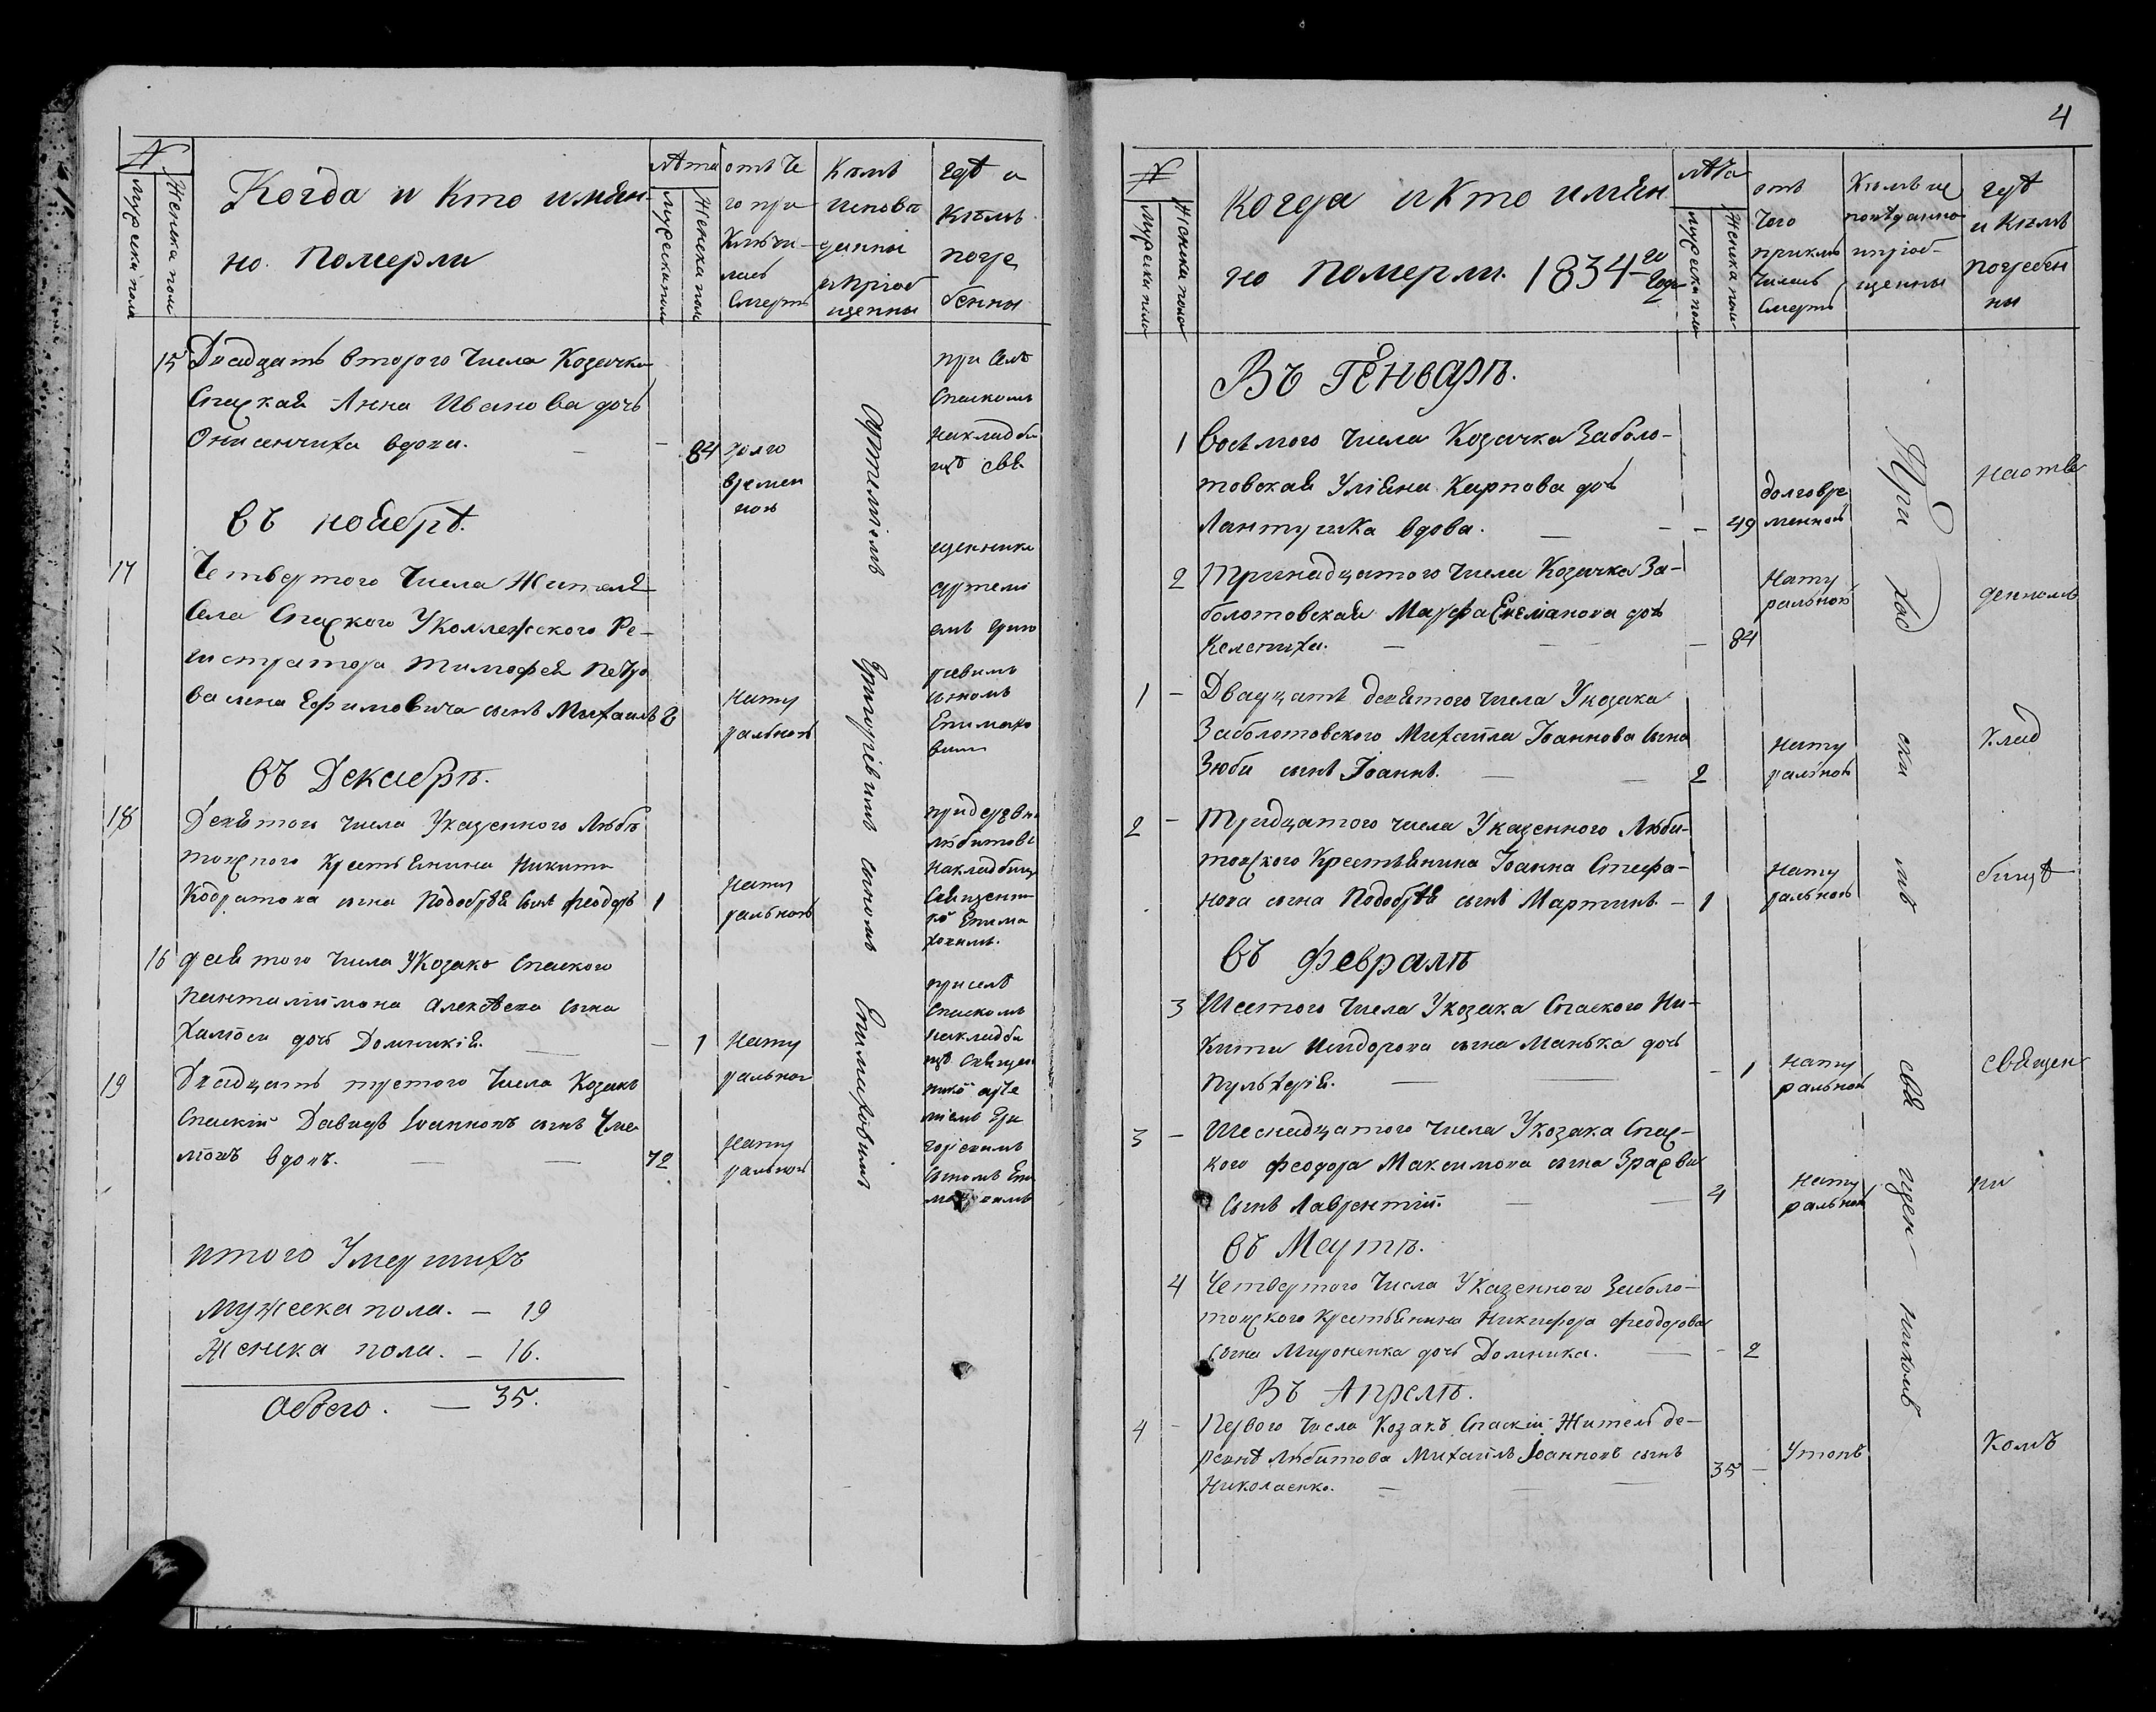 №
Мужеска пола
Женска пола
Когда и кто имян-
но померли
лѣта
Мужеска пола
Женска пола
отъ че
го при
ключи-
лась
смерть
Кѣмъ
исповѣ
данны
и пріоб
щенны
гдѣ и
кѣмъ
погре
бенны
15 Двадцать второго числа Козачка
Спаская Анна Иванова дочь
Онисенчиха вдова. — — 84 долго
времен
ной
при селѣ
Спаскомъ
на кладби
щѣ свя
въ ноябрѣ.
17 Четвертого числа Жителя
села Спаского Уколлежского Ре-
гистратора Тимофея Петро
ва сына Ефимовича сынъ Михаилъ 2
нату
ральной
щенника
артемі
емъ григо
рьевимъ
сыномъ
Епимахо
вимъ
въ Декабрѣ.
18 Девятого числа Указенного Любѣ
товского Крестьянина Никиты
Кодратова сына Подобрѣя сынъ Феодоръ 1
нату
ральной
при деревнѣ
любитовѣ
на кладбищѣ
священни
ко Епима
ховимъ.
16 девятого числа Указака Спаского
Пантилимона Алексѣева сына
Халтоси дочь Домникія. — — 1 нату
ральной
при селѣ
Спаскомъ
на кладби
щѣ священ
нико арте
міемъ Гри
горіевимъ
сыномъ Епи
маховимъ
19 Двадцать третого числа Козакъ
Спаскій Давидъ Іоанновъ сынъ
вдовъ. — — 72 нату
ральной
Артиміемъ Григоріевимъ сыномъ Епимаховимъ
итого Умершихъ
Мужеска пола. — 19
Женска пола. — 16.
Обоего. — 35.
4
№
Мужеска пола
Женска пола
Когда и кто имян
но померли. 1834-го Года
лѣта
Мужеска пола
Женска пола
отъ
чего
приклю
чилась
смерть
Кѣмъ ис
повѣданно
и пріоб-
щенны
гдѣ
и кѣмъ
погребен
ны
Въ Генварѣ.
1 Восмого числа Козачка Заболо-
товская Уліяна Карпова дочь
Лантушка вдова. — — 49 долговре
менной
2 Тринадцатого числа Козачка За-
болотовская Марфа Емеліанова дочь
Келепиха. — — 84
нату
ральной
1 — Двадцать девятого числа Укозака
Заболотовского Михайла Іоаннова сына
Зюби сынъ Іоаннъ. — — 2 нату
ральной
2 — Тридцатого числа Указенного Люби-
товского Крестьянина Іоанна Стефа-
нова сына Подобрѣя сынъ Мартинъ — 1 нату
ральной
въ Февралѣ
3 Шестого числа Укозака Спаского Ни-
киты Исидорова сына Манька дочь
Пульхерія. — — 1 нату
ральной
3 — Шеснадцатого числа Укозака Спас-
кого Феодора Максимова сына
сынъ Лаврентій. — — 4 нату
ральной
въ Мартѣ.
4 Четвертого числа Указенного Заболо-
товского Крестьянина Никифора Феодорова
сына Мироненка дочь Домника. — — 2
Въ Апрелѣ.
4 — Первого числа Козакъ Спаскій Житель де-
ревнѣ Любитова Михайлъ Іоанновъ сынъ
Николаенко. — — 35 — Утопъ
При ход ски мъ свя щен никомъ
на отве
денномъ
клад
бищѣ
священ
ни
комъ